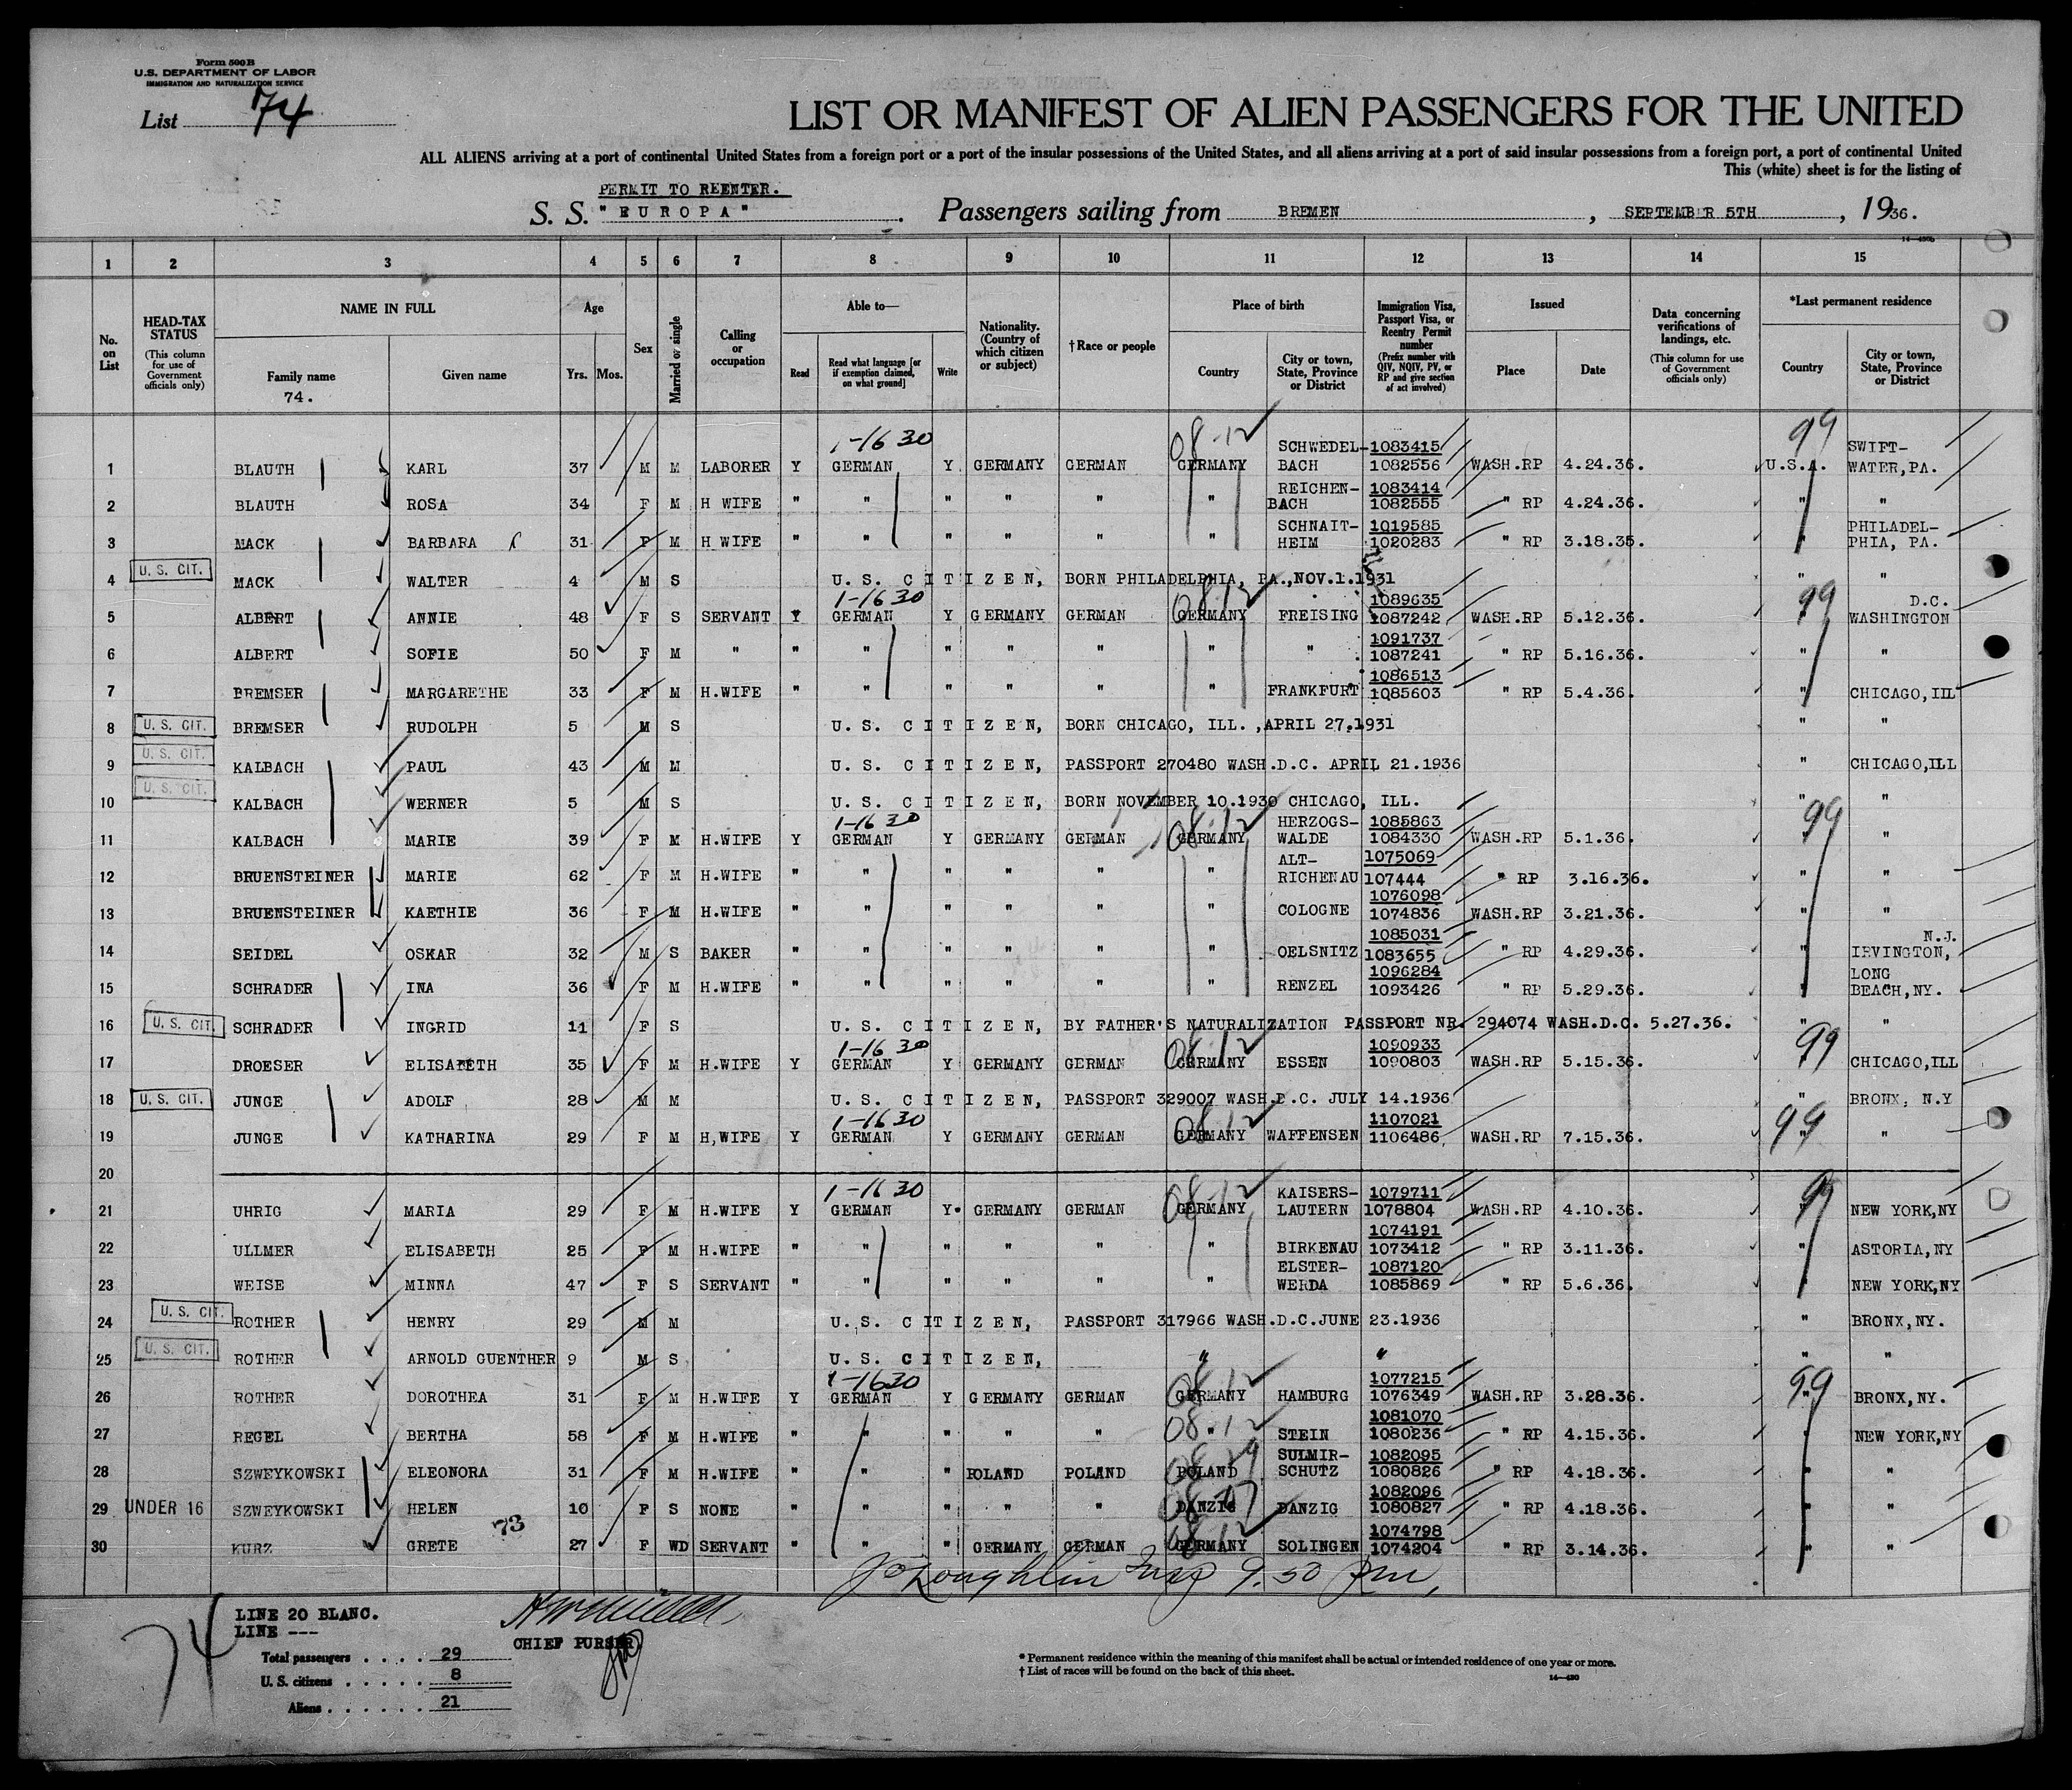 Form 500B
U.S. DEPARTMENT OF LABOR
IMMIGRATION AND NATURALIZATION SERVICE
List 74
LIST OR MANIFEST OF ALIEN PASSENGERS FOR THE UNITED
ALL ALIENS arriving at a port of continental United States from a foreign port or a port of the insular possessions of the United States, and all aliens arriving at a port of said insular possessions from a foreign port, a port of continental United
This (white) sheet is for the listing of
PERMIT TO REENTER.
S. S. "EUROPA". Passengers sailing from BREMEN, SEPTEMBER 5TH, 1936.
14—430b
1 2 3 4 5 6 7 8 9 10 11 12 13 14 15
No. on List
HEAD-TAX STATUS (This column for use of Government officials only)
NAME IN FULL
Family name 74. Given name
Age
Yrs. Mos.
Sex
Married or single
Calling or occupation
Able to—
Read
Read what language [or if exemption claimed, on what ground]
Write
Nationality. (Country of which citizen or subject)
†Race or people
Place of birth
Country
City or town, State, Province or District
Immigration Visa, Passport Visa, or Reentry Permit number (Prefix number with QIV, NQIV, PV, or RP and give section of act involved)
Issued
Place Date
Data concerning verifications of landings, etc. (This column for use of Government officials only)
*Last permanent residence
Country
City or town, State, Province or District
1-1630 08-12 SCHWEDEL- 1083415 99 SWIFT-
1 BLAUTH KARL 37 M M LABORER Y GERMAN Y GERMANY GERMAN GERMANY BACH 1082556 WASH.RP 4.24.36. U.S.A. WATER,PA.
REICHEN- 1083414
2 BLAUTH ROSA 34 F M H WIFE " " " " " " BACH 1082555 " RP 4.24.36. " "
SCHNAIT- 1019585 PHILADEL-
3 MACK BARBARA 31 F M H WIFE " " " " " " HEIM 1020283 " RP 3.18.35. " PHIA, PA.
4 U. S. CIT. MACK WALTER 4 M S U. S. CITIZEN, BORN PHILADELPHIA, PA.,NOV.1.1931 " "
1-1630 08-12 1089635 99 D.C.
5 ALBERT ANNIE 48 F S SERVANT Y GERMAN Y GERMANY GERMAN GERMANY FREISING 1087242 WASH.RP 5.12.36. " WASHINGTON
1091737
6 ALBERT SOFIE 50 F M " " " " " " " " 1087241 " RP 5.16.36. " "
1086513
7 BREMSER MARGARETHE 33 F M H.WIFE " " " " " " FRANKFURT 1085603 " RP 5.4.36. " CHICAGO,ILL
8 U. S. CIT. BREMSER RUDOLPH 5 M S U. S. CITIZEN, BORN CHICAGO, ILL.,APRIL 27.1931 " "
9 U. S. CIT. KALBACH PAUL 43 M M U. S. CITIZEN, PASSPORT 270480 WASH.D.C. APRIL 21.1936 " CHICAGO,ILL
10 U. S. CIT. KALBACH WERNER 5 M S U. S. CITIZEN, BORN NOVEMBER 10.1930 CHICAGO, ILL. " "
1-1630 08-12 HERZOGS- 1085863 99
11 KALBACH MARIE 39 F M H.WIFE Y GERMAN Y GERMANY GERMAN GERMANY WALDE 1084330 WASH.RP 5.1.36. " "
ALT- 1075069
12 BRUENSTEINER MARIE 62 F M H.WIFE " " " " " " RICHENAU 107444 " RP 3.16.36. " "
1076098
13 BRUENSTEINER KAETHIE 36 F M H.WIFE " " " " " " COLOGNE 1074836 WASH.RP 3.21.36. " "
1085031 N.J.
14 SEIDEL OSKAR 32 M S BAKER " " " " " " OELSNITZ 1083655 " RP 4.29.36. " IRVINGTON,
1096284 LONG
15 SCHRADER INA 36 F M H.WIFE " " " " " " RENZEL 1093426 " RP 5.29.36. " BEACH,NY.
16 U. S. CIT. SCHRADER INGRID 11 F S U. S. CITIZEN, BY FATHER'S NATURALIZATION PASSPORT NR. 294074 WASH.D.C. 5.27.36. " "
1-1630 08-12 1090933 99
17 DROESER ELISABETH 35 F M H.WIFE Y GERMAN Y GERMANY GERMAN GERMANY ESSEN 1090803 WASH.RP 5.15.36. " CHICAGO,ILL
18 U. S. CIT. JUNGE ADOLF 28 M M U. S. CITIZEN, PASSPORT 329007 WASH.D.C. JULY 14.1936 " BRONX, N.Y
1-1630 08-12 1107021 99
19 JUNGE KATHARINA 29 F M H,WIFE Y GERMAN Y GERMANY GERMAN GERMANY WAFFENSEN 1106486 WASH.RP 7.15.36. " "
20
1-1630 08-12 KAISERS- 1079711 99
21 UHRIG MARIA 29 F M H.WIFE Y GERMAN Y GERMANY GERMAN GERMANY LAUTERN 1078804 WASH.RP 4.10.36. " NEW YORK,NY
1074191
22 ULLMER ELISABETH 25 F M H.WIFE " " " " " " BIRKENAU 1073412 " RP 3.11.36. " ASTORIA,NY
ELSTER- 1087120
23 WEISE MINNA 47 F S SERVANT " " " " " " WERDA 1085869 " RP 5.6.36. " NEW YORK,NY
24 U. S. CIT. ROTHER HENRY 29 M M U. S. CITIZEN, PASSPORT 317966 WASH.D.C.JUNE 23.1936 " BRONX,NY.
25 U. S. CIT. ROTHER ARNOLD GUENTHER 9 M S U. S. CITIZEN, " " " "
1-1630 08-12 1077215 99
26 ROTHER DOROTHEA 31 F M H.WIFE Y GERMAN Y GERMANY GERMAN GERMANY HAMBURG 1076349 WASH.RP 3.28.36. " BRONX,NY.
08-12 1081070
27 REGEL BERTHA 58 F M H.WIFE " " " " " " STEIN 1080236 " RP 4.15.36. " NEW YORK,NY
SULMIR- 1082095
28 SZWEYKOWSKI ELEONORA 31 F M H.WIFE " " " POLAND POLAND POLAND SCHUTZ 1080826 " RP 4.18.36. " "
1082096
29 UNDER 16 SZWEYKOWSKI HELEN 10 F S NONE " " " " " DANZIG DANZIG 1080827 " RP 4.18.36. " "
73 08-12 1074798
30 KURZ GRETE 27 F WD SERVANT " " " GERMANY GERMAN GERMANY SOLINGEN 1074204 " RP 3.14.36. " "
9.50 pm,
74
LINE 20 BLANC.
LINE ---
CHIEF PURSER
Total passengers . . . . 29
U. S. citizens . . . . . 8
Aliens . . . . . . 21
* Permanent residence within the meaning of this manifest shall be actual or intended residence of one year or more.
† List of races will be found on the back of this sheet.
14—430